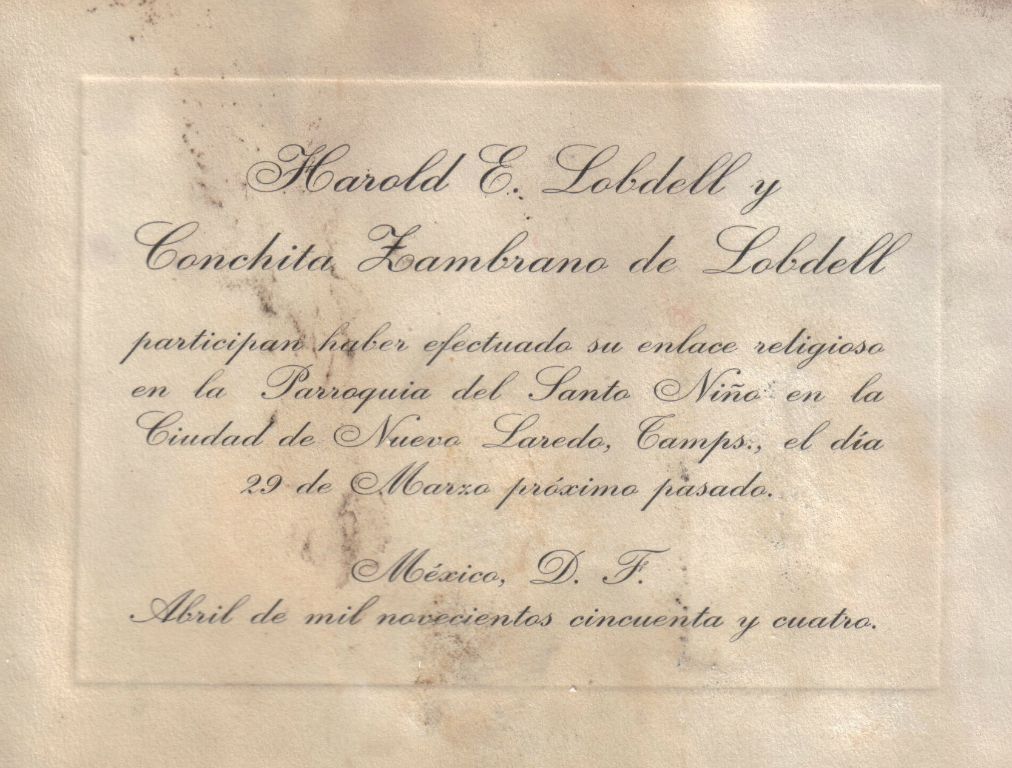 Harold E. Lobdell y
Conchita Zambrano de Lobdell
participan haber efectuado su enlace religioso
en la Parroquia del Santo Niño en la
Ciudad de Nuevo Laredo, Tamps., el día
29 de Marzo próximo pasado.
México, D. F.
Abril de mil novecientos cincuenta y cuatro.